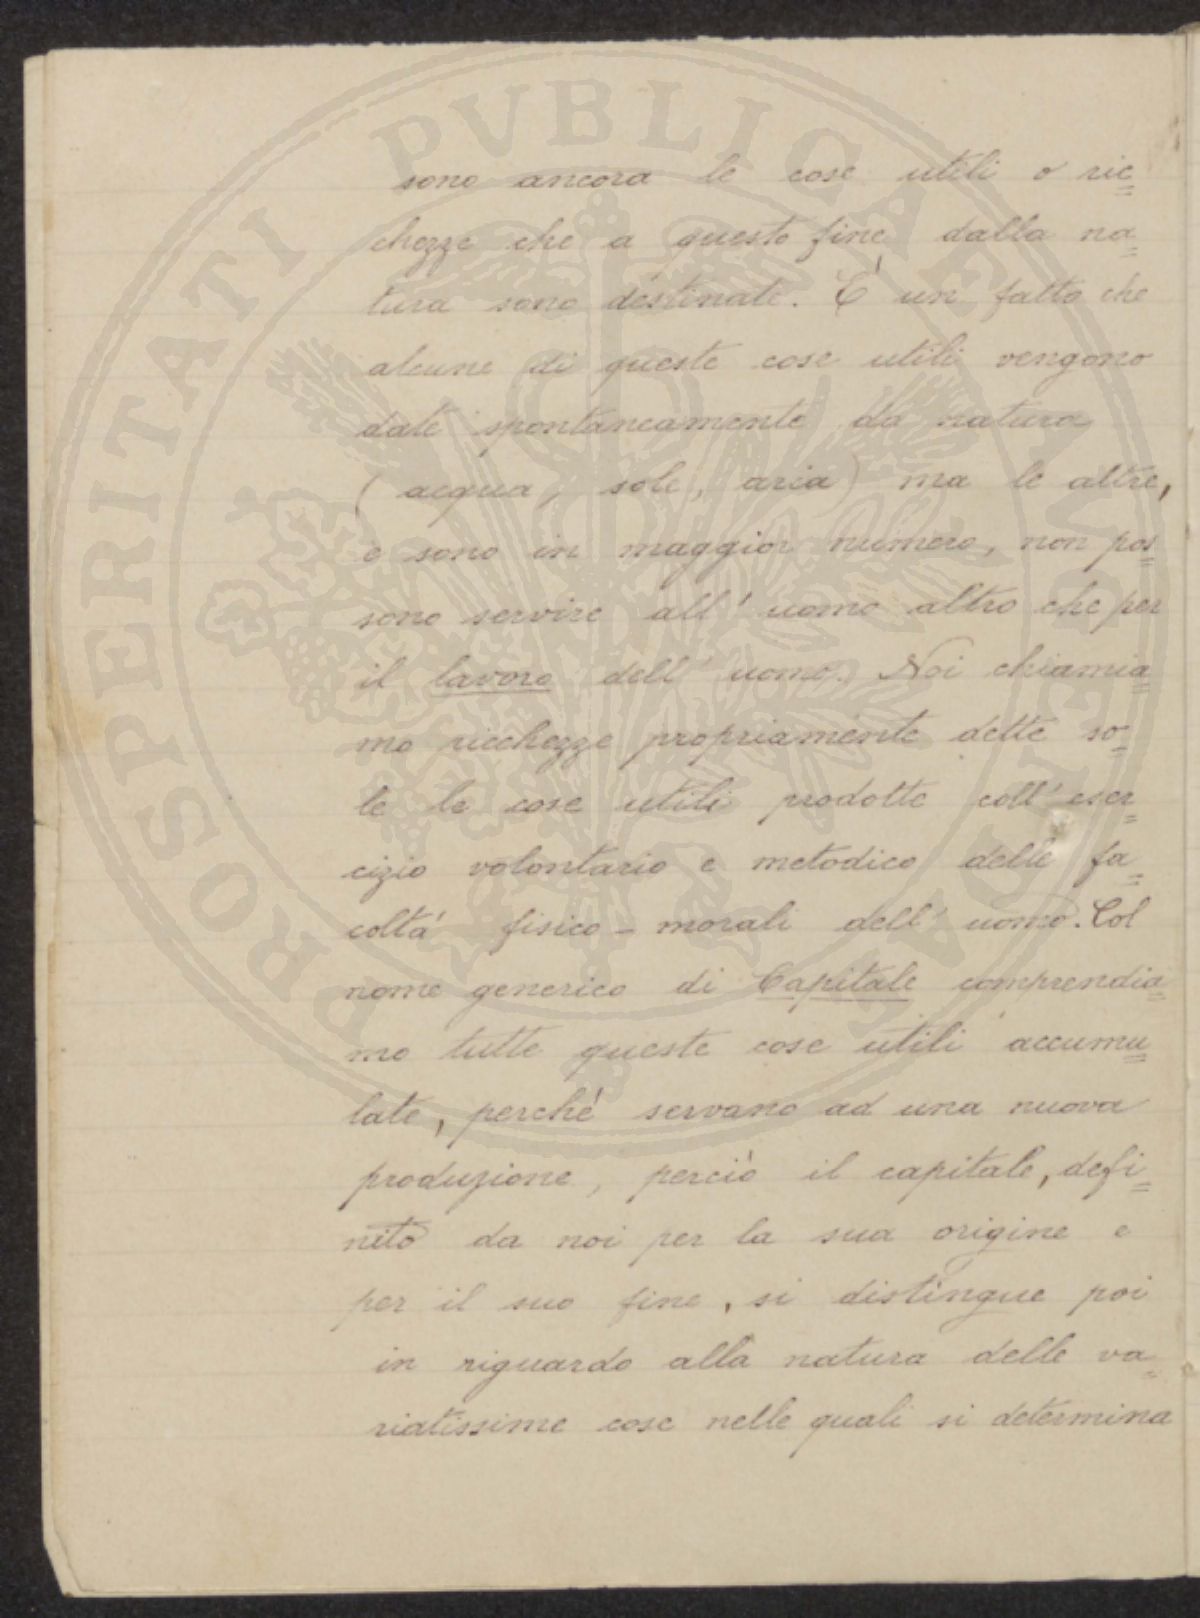 sono ancora le cose utili o ric=
chezze che a questo fine dalla na=
tura sono destinate. É un fatto che
alcune di queste cose utili vengono
date spontaneamente da natura
(acqua, sole, aria) ma le altre,
e sono in maggior numero, non pos=
sono servire all' uomo altro che per
il lavoro dell' uomo. Noi chiamia=
mo ricchezze propriamente dette so=
le le cose utili prodotte coll' eser=
cizio volontario e metodico delle fa=
coltá fisico - morali dell' uomo. Col
nome generico di Capitale comprendia=
mo tutte queste cose utili accumu=
late, perchè servano ad una nuova
produzione, perciò il capitale, defi=
nito da noi per la sua origine e
per il suo fine, si distingue poi
in riguardo alla natura delle va=
riatissime cose nelle quali si determina
PROSPERITATI PVBLICAE AVGENDAE